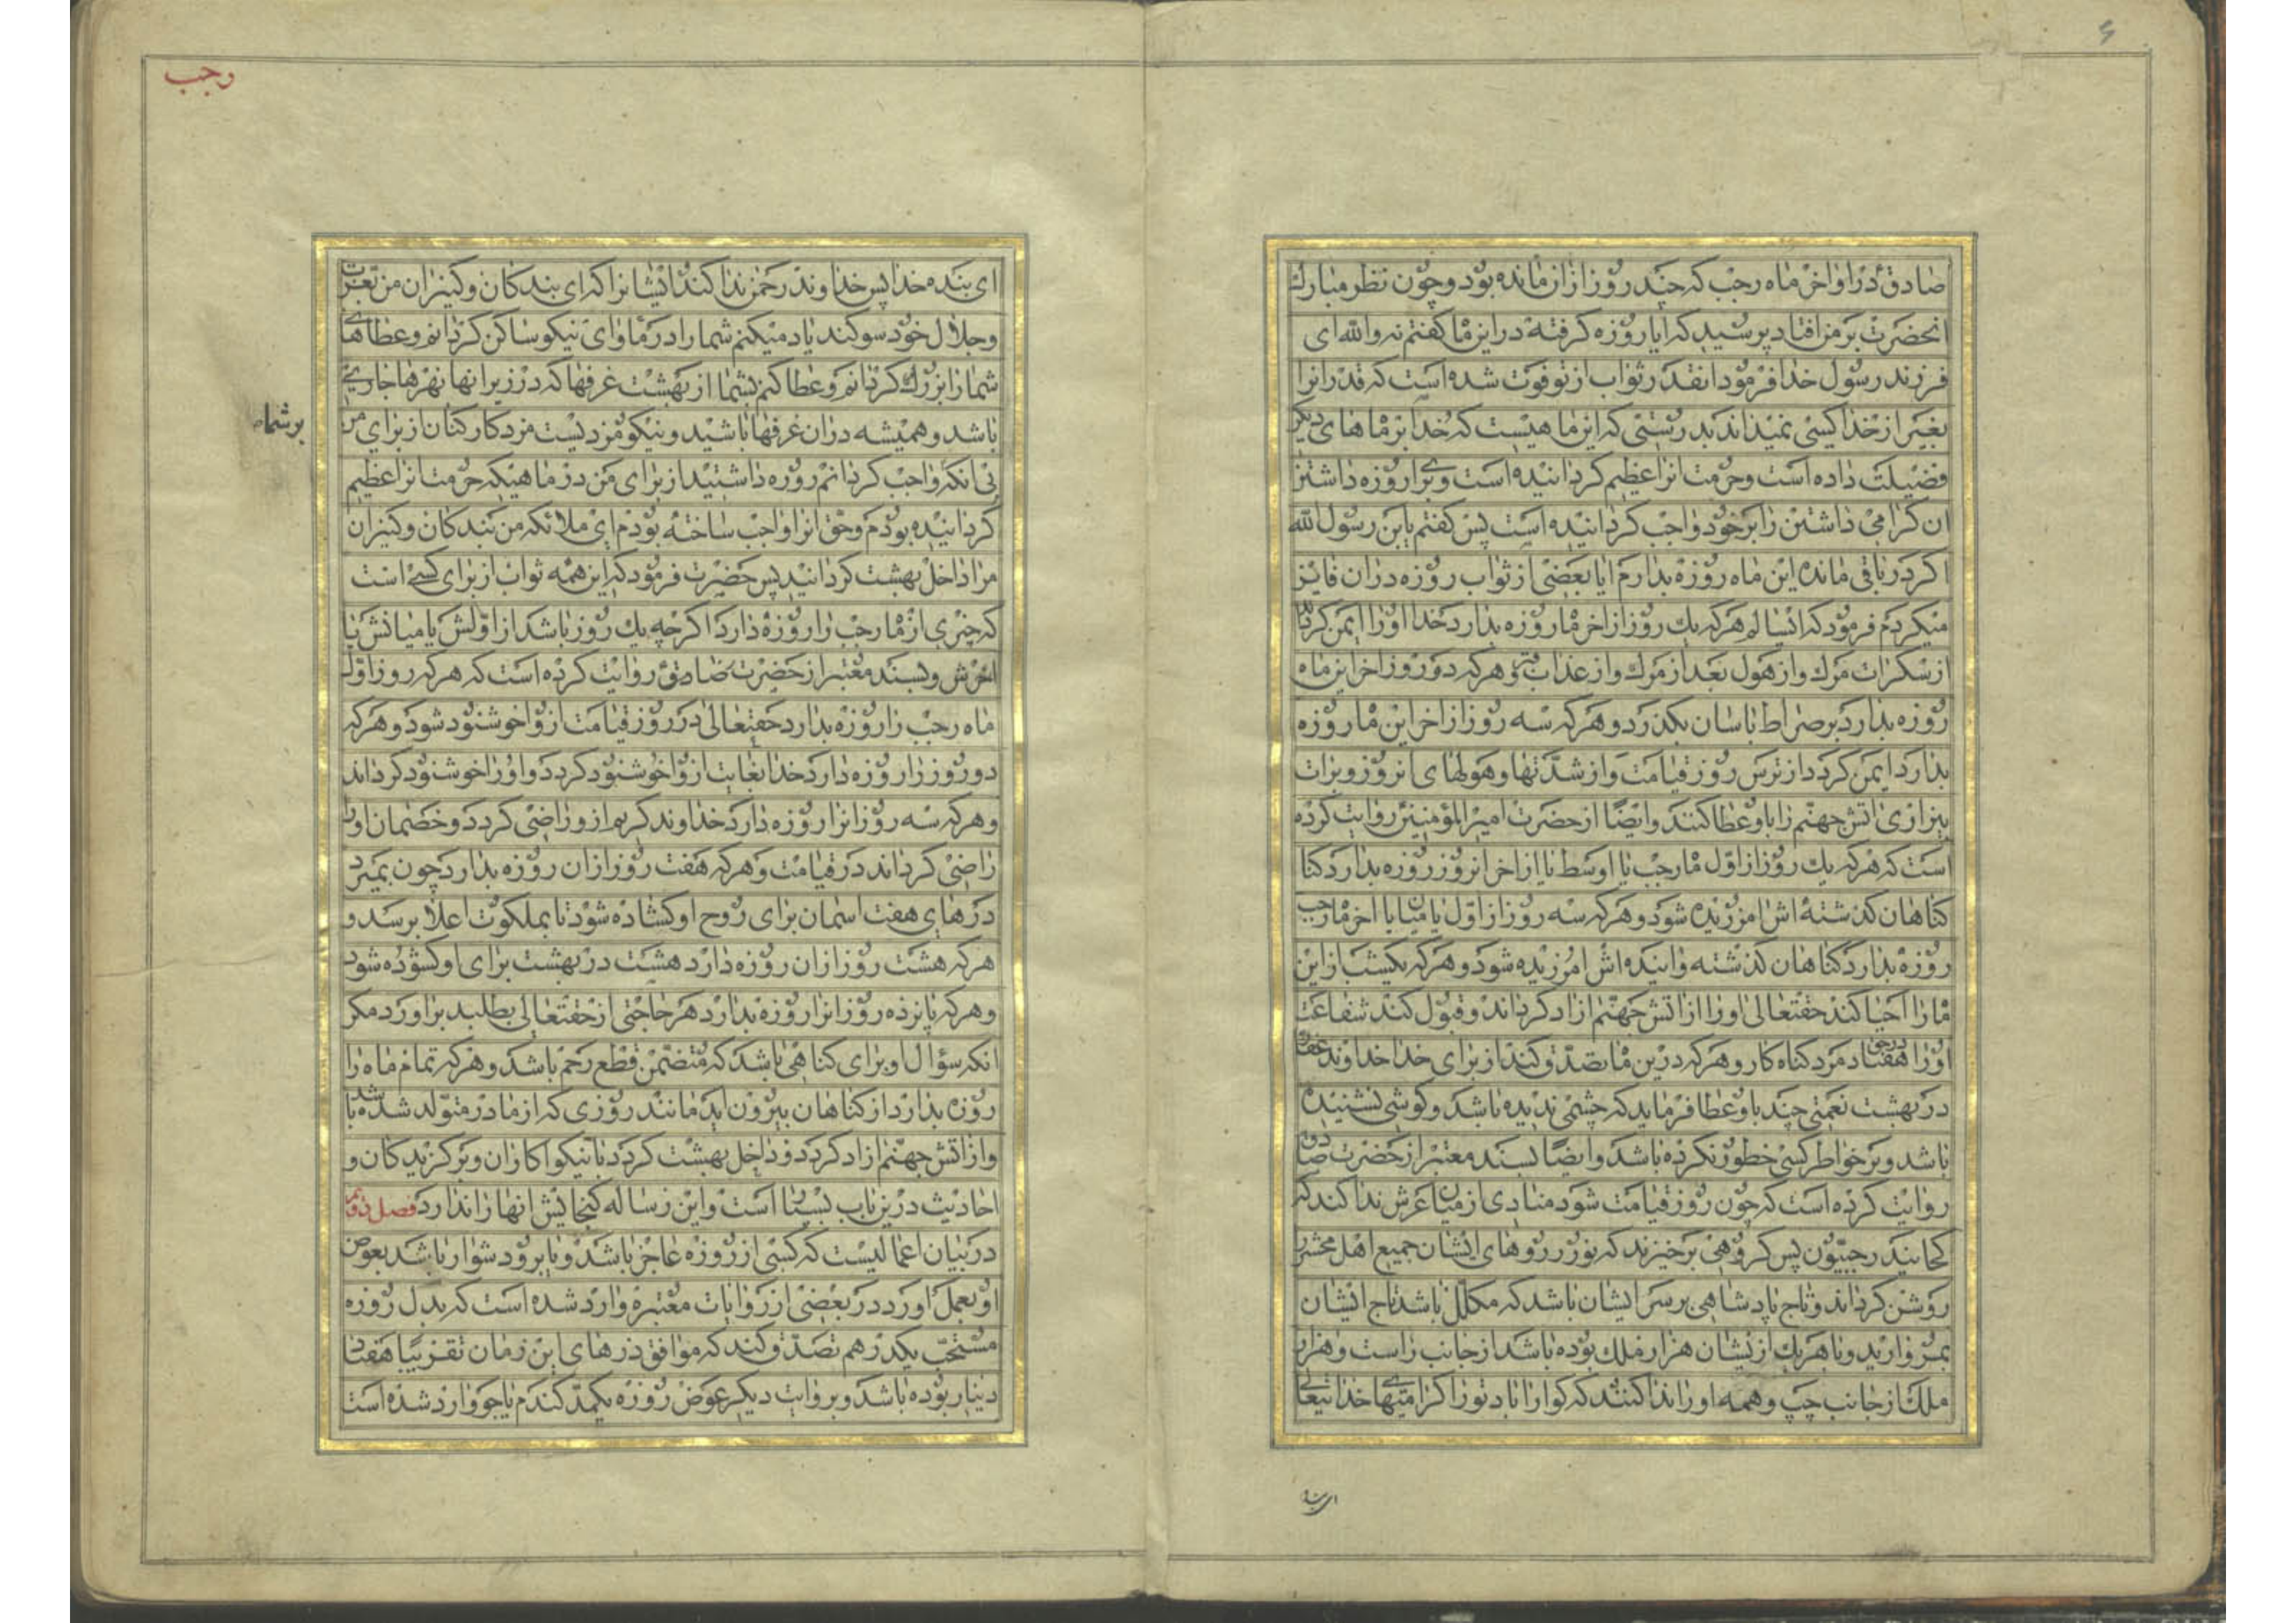 ۶
صادق ع در اواخر ماه رجب که چند روز از ان مانده بود و چون نظر مبارك
انحضرت بر من افتاد پرسید که ایا روزه کرفته در این ما کفتم نه والله ای
فرزند رسول خدا فرمود انقدر ثواب از تو فوت شده است که قدر انرا
بغیر از خدا کسی نمیداند بدرستی که این ما هیست که خدا بر ماهای دیکر
فضیلت داده است و حرمت انرا عظیم کردانیده است و برای روزه داشتن
ان کرامی داشتن را بر خود واجب کردانیده است پس کفتم یابن رسول الله
اکر در باقی مانده این ماه روزه بدارم ایا بعضی از ثواب روزه دران فایز
میکردم فرمود که ایسالم هر که یك روز از اخر ما روزه بدارد خدا اورا ایمن کرداند
از سکرات مرك و از هول بعد از مرك و از عذاب قبر و هر که دو روز اخر این ماه
روزه بدارد بر صراط باسان بکذرد و هر که سه روز از اخر این ما روزه
بدارد ایمن کردد از ترس روز قیامت و از شدّتها و هولهای انروز و برات
بیزاری اتش جهنّم را باو عطا کنند و ایضًا از حضرت امیر المؤمنین روایت کرده
است که هر که یك روز از اوّل ما رجب یا اوسط یا از اخر انروز روزه بدارد کنا
کناهان کذشته اش امرزیده شود و هر که سه روز از اوّل یا میان یا اخر ما رجب
روزه بدارد کناهان کذشته و اینده اش امرزیده شود و هر که یکشب از این
ما را احیا کند حقتعالی اورا از اتش جهنّم ازاد کرداند و قبول کند شفاعت
اورا درحق هفتاد مرد کناه کار و هر که درین ما تصدّق کند از برای خدا خداوند غفار
در بهشت نعمتی چند باو عطا فرماید که چشمی ندیده باشد و کوشی نشنیده
باشد و بر خواطر کسی خطور نکرده باشد و ایضًا بسند معتبر از حضرت صادق
روایت کرده است که چون روز قیامت شود منادی از میان عرش ندا کند که
کجایند رجبیّون پس کروهی برخیزند که نور روهای ایشان جمیع اهل محشر را
روشن کرداند و تاج پادشاهی بر سر ایشان باشد که مکلّل باشد تاج ایشان
بمروارید و با هر یك از یشان هزار ملك بوده باشد از جانب راست و هزار
ملك از جانب چپ و همه او را ندا کنند که کوارا باد تو را کرامتهای خدایتعالی
ای بنده
رجب
ای بنده خدا پس خداوند رحمن ندا کند ایشانرا که ای بندکان و کنیزان من بعزت
و جلال خود سوکند یاد میکنم شما را در ماوای نیکو ساکن کردانم و عطاهای
شما را بزرك کردانم و عطا کنم بشما از بهشت غرفها که در زیر انها نهرها جاری
باشد و همیشه دران غرفها باشید و نیکو مزدیست مزد کارکنان از برای من
بر شما
بی انکه واجب کردانم روزه داشتید از برای من در ماهیکه حرمت انرا عظیم
کردانیده بودم و حق انرا واجب ساخته بودم ای ملائکه من بندکان و کنیزان
مرا داخل بهشت کردانید پس حضرت فرمود که این همه ثواب از برای کسی است
که چیزی از ما رجب را روزه دارد اکرچه یك روز باشد از اوّلش یا میانش یا
اخرش و بسند معتبر از حضرت صادق ع روایت کرده است که هر که روز اوّل
ماه رجب را روزه بدارد حقتعالی در روز قیامت از وا خوشنود شود و هر که
دو روز را روزه دارد خدا بغایت از وا خوشنود کردد و اورا خوشنود کرداند
و هر که سه روز انرا روزه دارد خداوند کریم از و راضی کردد و خصمان او را
راضی کرداند در قیامت و هر که هفت روز ازان روزه بدارد چون بمیرد
درهای هفت اسمان برای روح او کشاده شود تا بملکوت اعلا برسد و
هر که هشت روز ازان روزه دارد هشت در بهشت برای او کشوده شود
و هر که پانزده روز انرا روزه بدارد هر حاجتی از حقتعالی بطلبد براورد مکر
انکه سؤال او برای کناهی باشد که متضمّن قطع رحم باشد و هر که تمام ماه را
روزه بدارد از کناهان بیرون اید مانند روزی که از مادر متولد شده باشد
و از اتش جهنّم ازاد کردد و داخل بهشت کردد با نیکواکاران و برکزیدکان و
احادیث درین باب بسیار است و این رساله کنجایش انها را ندارد فصل دوّیم
در بیان اعمالیست که کسی از روزه عاجز باشد و یا برو دشوار باشد بعوض
او بعمل اورد در بعضی از روایات معتبره وارد شده است که بدل روزه
مستحبّ یکدرهم تصدّق کند که موافق درهای این زمان تقریبًا هفتاد
دینار بوده باشد و بروایت دیکر عوض روزه یکمدّ کندم یا جو وارد شده است